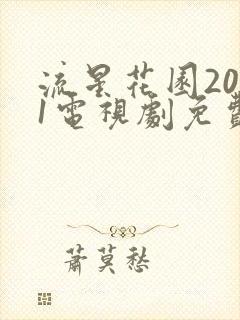 流星花园20
1電視劇免費
蕭莫愁